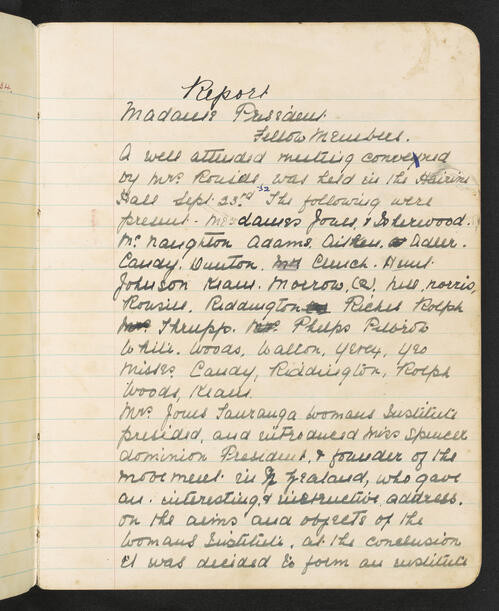 Report
Madame President
Fellow Members.
A well attended meeting convened
by Mrs Rousill, was held in the Fairview
Hall Sept. 23rd 32 The following were
present. Mesdames Jones, & Isherwood.
Mc Naughton Adams, Aitken, Adler.
Candy. Dunton, Clinch. Hunt.
Johnson Kearns. Morrow, Neil, Norris,
Rousill, Riddington Riches Rolph
Thrupp. Phelps
White. Woods, Walton, Yeo
Misses Candy, Riddington, Rolph
Woods, Kearns.
Mrs Jones Tauranga Womans Institute
presided, and introduced Miss Spencer
dominion President, & founder of the
movement in N Zealand, who gave
an interesting, & instructive, address.
on the aims and objects of the
Womans Institute, at the conclusion
it was decided to form an institute